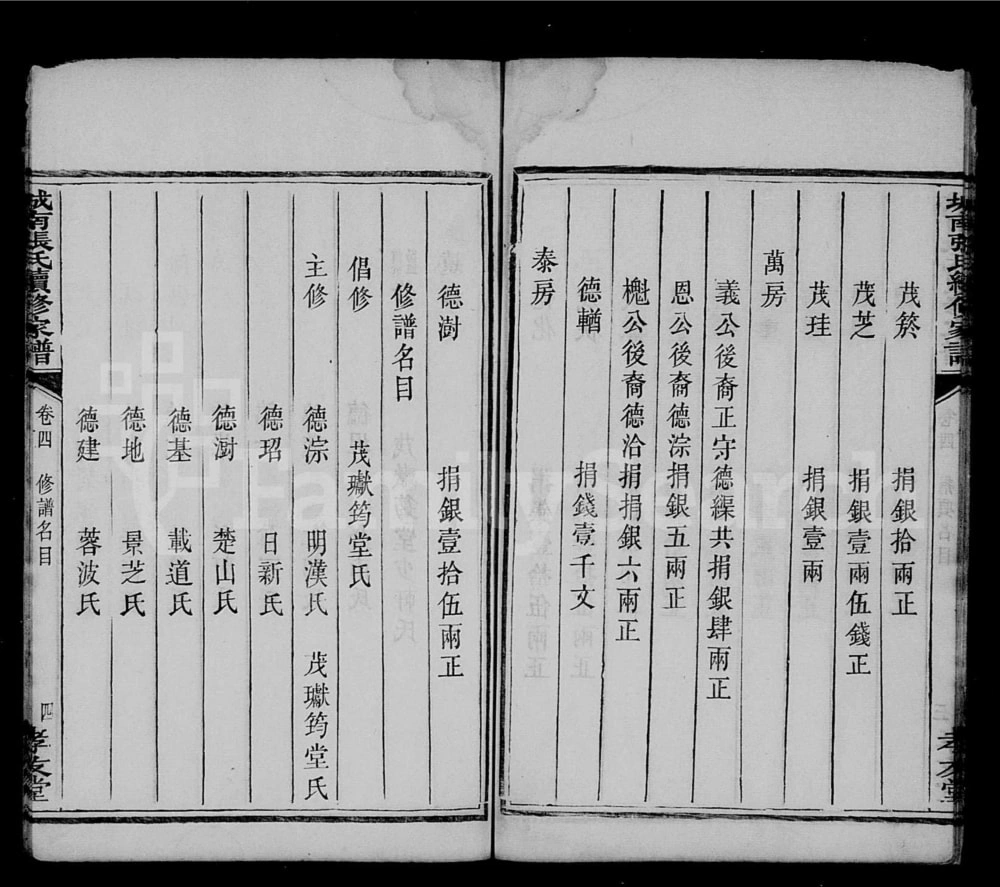 城南張氏續修家譜
三
孝友堂
茂菸 捐銀拾兩正
茂芝 捐銀壹兩伍錢正
茂珪 捐銀壹兩
萬房
義公後裔正守德縹共捐銀肆兩正
恩公後裔德淙捐銀五兩正
櫆公後裔德洽捐捐銀六兩正
德輶 捐錢壹千文
泰房
德澍 捐銀壹拾伍兩正
修譜名目
倡修 茂瓛筠堂氏
主修 德淙 明漢氏 茂瓛筠堂氏
德玿 日新氏
德澍 楚山氏
德基 載道氏
德地 景芝氏
德建 蓉波氏
城南張氏續修家譜
卷四 修譜名目
四
孝友堂